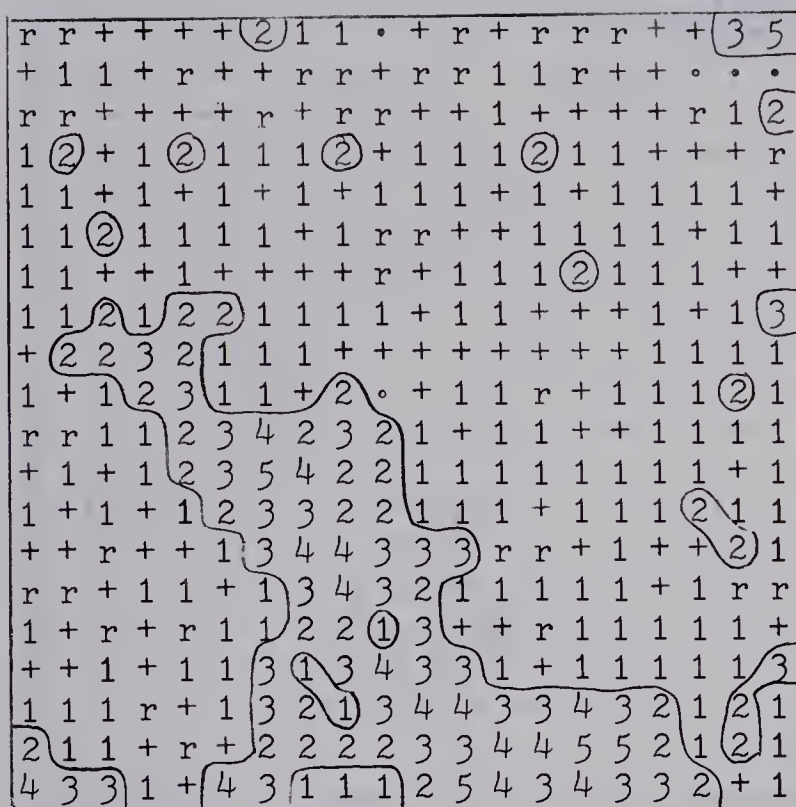 r r + + + + 2 1 1 • + r + r r r + + 3 5
+ 1 1 + r + + r r + r r 1 1 r + + ∘ • •
r r + + + + r + r r + + 1 + + + + r 1 2
1 2 + 1 2 1 1 1 2 + 1 1 1 2 1 1 + + + r
1 1 + 1 + 1 + 1 + 1 1 1 + 1 + 1 1 1 1 +
1 1 2 1 1 1 1 + 1 r r + + 1 1 1 1 + 1 1
1 1 + + 1 + + + + r + 1 1 1 2 1 1 1 + +
1 1 2 1 2 2 1 1 1 1 + 1 1 + + + 1 + 1 3
+ 2 2 3 2 1 1 1 + + + + + + + + 1 1 1 1
1 + 1 2 3 1 1 + 2 ∘ + 1 1 r + 1 1 1 2 1
r r 1 1 2 3 4 2 3 2 1 + 1 1 + + 1 1 1 1
+ 1 + 1 2 3 5 4 2 2 1 1 1 1 1 1 1 1 + 1
1 + 1 + 1 2 3 3 2 2 1 1 1 + 1 1 1 2 1 1
+ + r + + 1 3 4 4 3 3 3 r r + 1 + + 2 1
r r + 1 1 + 1 3 4 3 2 1 1 1 1 1 + 1 r r
1 + r + r 1 1 2 2 1 3 + + r 1 1 1 1 1 +
+ + 1 + 1 1 3 1 3 4 3 3 1 + 1 1 1 1 1 3
1 1 1 r + 1 3 2 1 3 4 4 3 3 4 3 2 1 2 1
2 1 1 + r + 2 2 2 2 3 3 4 4 5 5 2 1 2 1
4 3 3 1 + 4 3 1 1 1 2 5 4 3 4 3 3 2 + 1